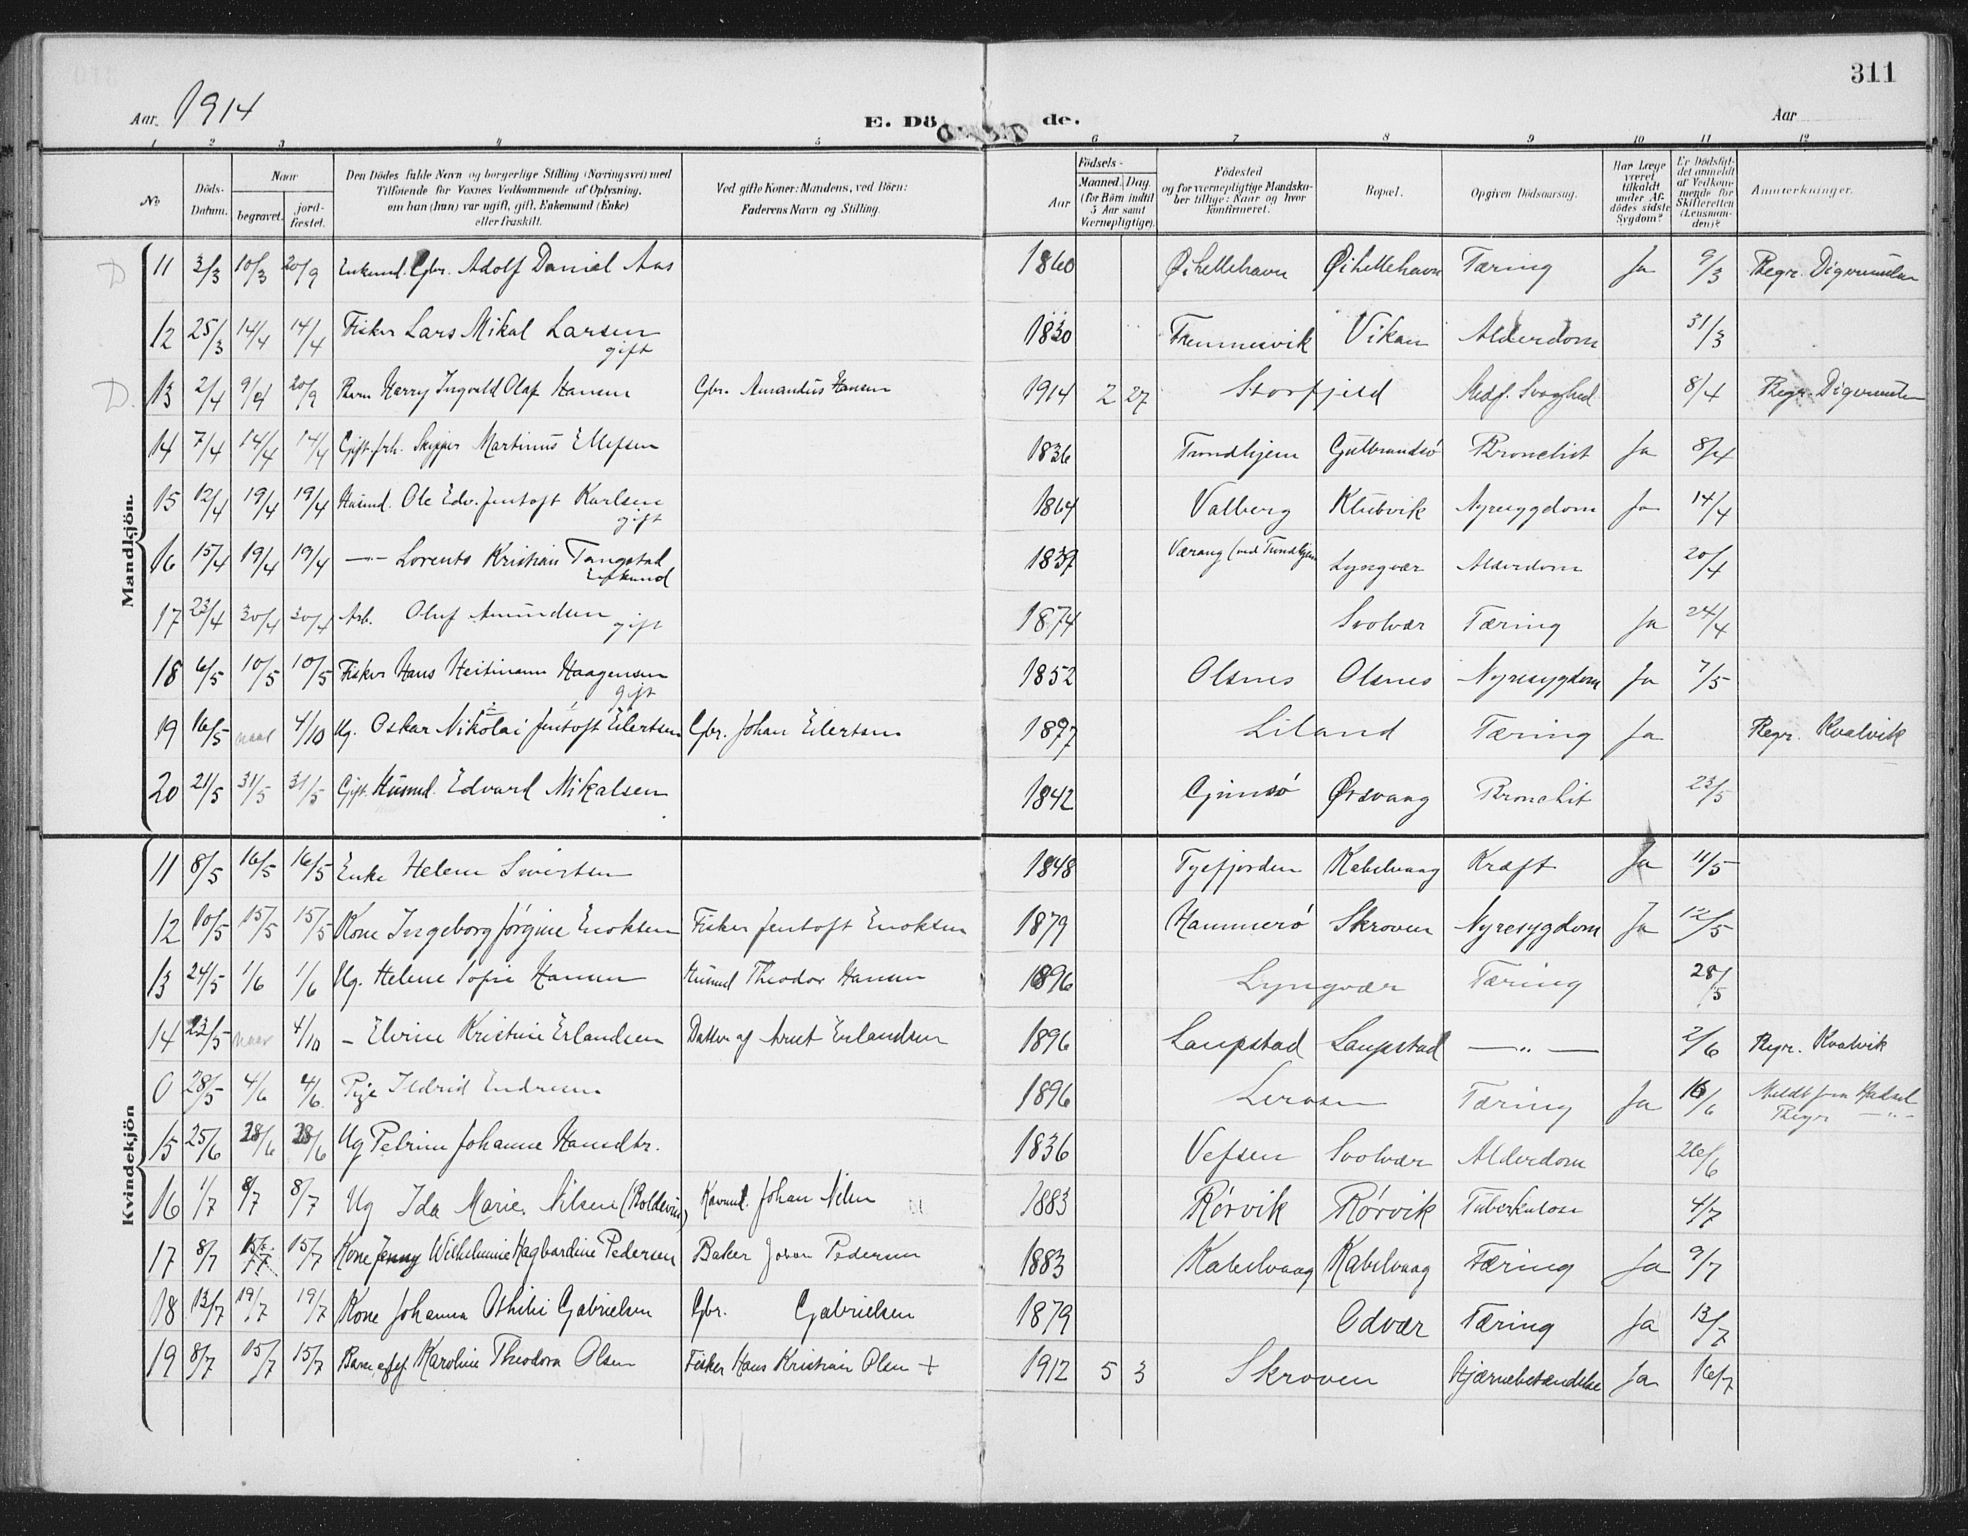 311
Aar. 1914 E. Dö de. Aar
1 2 3 4 5 6 7 8 9 10 11 12
No Döds-Datum. Naar begravet. jordfæstet. Den Dödes fulde Navn og borgerlige Stilling (Næringsvei) med Tilföiende for Voxnes Vedkommende af Oplysning, om han (hun) var ugift, gift, Enkemand (Enke) eller fraskilt. Ved gifte Koner: Mandens, ved Börn: Faderens Navn og Stilling. Födsels- Aar Maaned. Dag. (for Börn indtil 5 Aar samt Værnepligtige). Födested og for værnepligtige Mandskaber tillige: Naar og hvor konfirmeret. Bopæl. Opgiven Dödsaarsag. Har Læge været tilkaldt under Afdödes sidste Sygdom? Er Dödsfaldet anmeldt af Vedkommende for Skifteretten (Lensmanden)? Anmærkninger.
Mandkjön.
D 11 3/3 10/3 20/9 Enkemd. Gbr. Adolf Daniel Aas 1860 Øihellehavn Øihellehavn Tæring Ja 9/3 Begr. Digermulen
12 25/3 14/4 14/4 Fisker Lars Mikal Larsen gift 1830 Vikan Alderdom 31/3
D. 13 2/4 9/4 20/9 Barn Harry Ingvald Olaf Hansen Gbr. Amandus Hansen 1914 2 27 Storfjord Medf. Svaghed 8/4 Begr. Digermulen
14 7/4 14/4 14/4 Gift. frh. Skipper Martinus Ellefsen 1836 Trondhjem Gulbrandsø Bronchit Ja 8/4
15 12/4 19/4 19/4 Husmd. Ole Edv. Jentoft Karlsen gift 1864 Valberg Klubvik Nyresygdom Ja 14/4
16 15/4 19/4 19/4 —"— Lorents Kristian Tangstad Enkemd 1839 (ved Trondhjem Lyngvær Alderdom 20/4
17 23/4 30/4 30/4 Arb. Oluf Amundsen gift 1874 Svolvær Tæring Ja 24/4
18 6/5 10/5 10/5 Fisker Hans Heitmann Haagensen gift 1852 Olsnes Olsnes Nyresygdom Ja 7/5
19 16/5 naar 4/10 Ug. Oskar Nikolai Jentoft Eilertsen Gbr. Johan Eilertsen 1897 Liland Tæring Ja Begr. Kvalvik
20 21/5 31/5 31/5 Gift. Husmd. Edvard Mikalsen 1842 Gimsø Ørsvaag Bronchit 23/5
Kvindekjön
11 8/5 16/5 16/5 Enke Helene Sivertsen 1848 Tysfjorden Kabelvaag Kræft Ja 11/5
12 10/5 15/5 15/5 Kone Ingeborg Jörgine Enoksen Fisker Jentoft Enoksen 1879 Hammerø Skroven Nyresygdom Ja 12/5
13 24/5 1/6 1/6 Ug. Helene Sofie Hansen Husmd Theodor Hansen 1896 Lyngvær Tæring 28/5
14 23/5 naar 4/10 — Elvine Kristine Erlandsen Datter af Arnt Erlandsen 1896 Laupstad Laupstad —"— 2/6 Begr. Kvalvik
0 28/5 4/6 4/6 Pige Ildrid Endresen 1896 Lerosen Tæring Ja 10/6 Meldt fra Hadsel Begr —"—
15 25/6 28/6 28/6 Ug Petrine Johanna Hansdtr. 1836 Vefsen Svolvær Alderdom 26/6
16 1/7 8/7 8/7 Ug Ida Marie Nilsen (Boldevin) Johan Nilsen 1883 Rörvik Rörvik Tuberkulose 4/7
17 8/7 15/7 15/7 Kone Jenny Wilhelmine Hagbardine Pedersen Baker Johan Pedersen 1883 Kabelvaag Kabelvaag Tæring Ja 9/7
18 13/7 19/7 19/7 Kone Johanna Othilie Gabrielsen Gbr. Gabrielsen 1879 Odvær Tæring Ja 13/7
19 8/7 15/7 15/7 Barn Karoline Theodora Olsen Fisker Hans Kristian Olsen + 1912 5 3 Skroven Hjærnebetændelse Ja 16/7